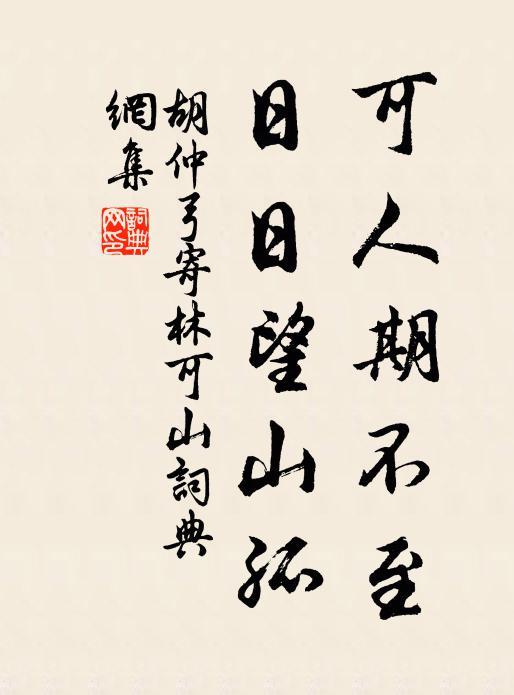 可人期不至
日日望山孤
胡仲弓寄林可山詞典
網集
詞典網印